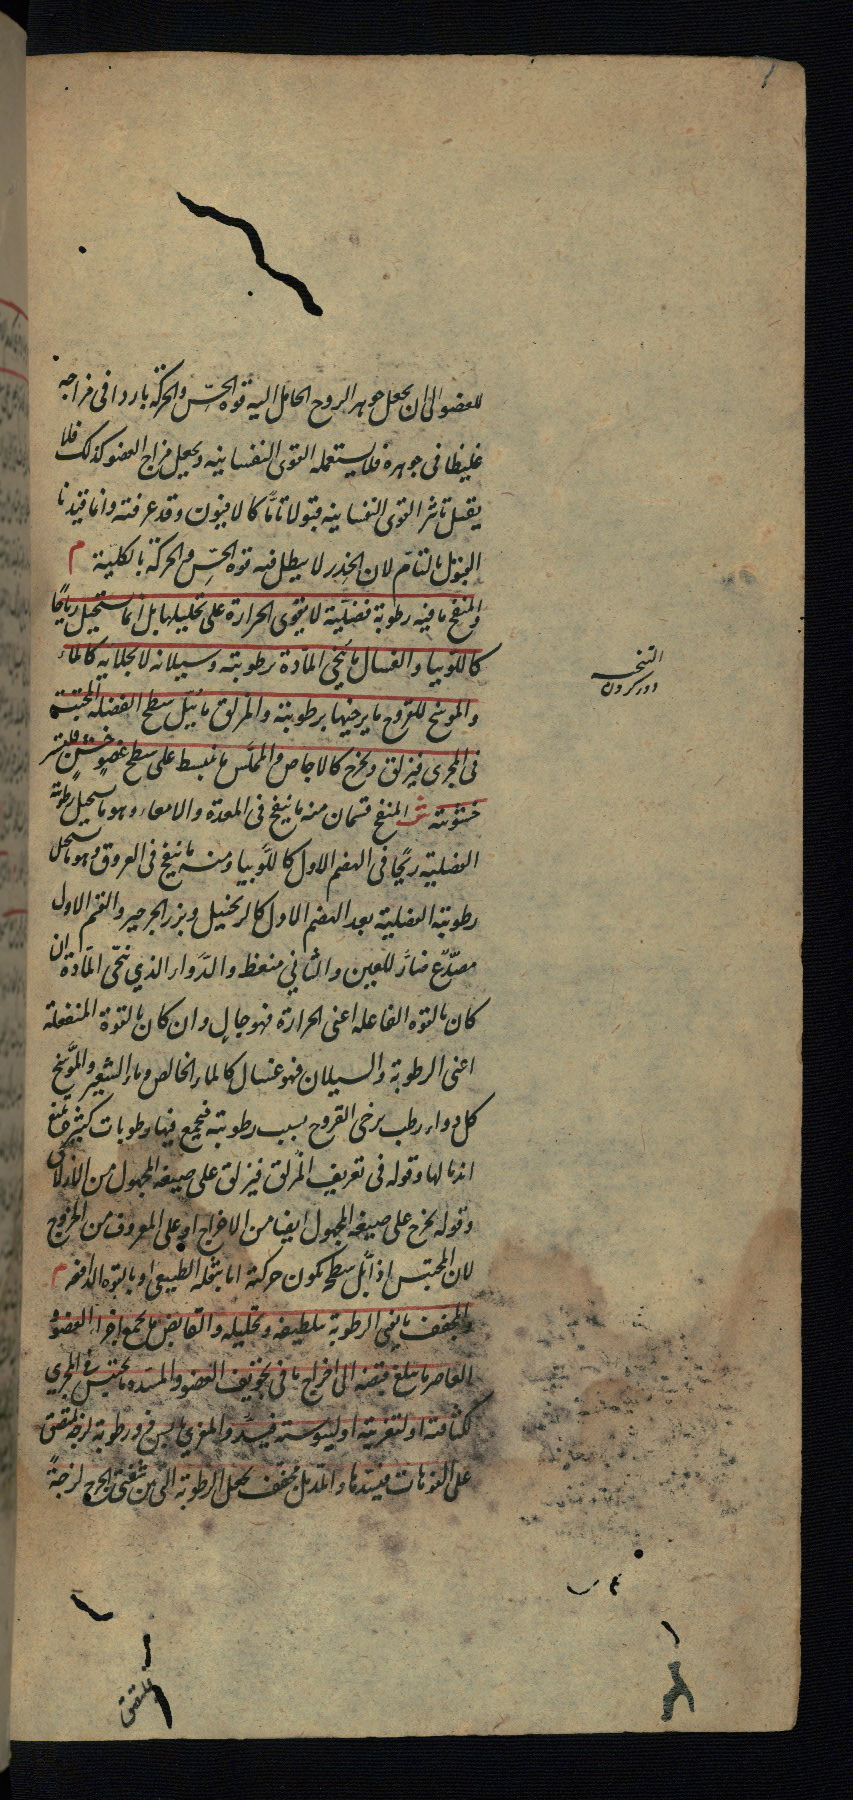 للعضو الى ان يجعل جوهر الروح الحامل اليه قوة الحسّ والحركة باردا فى مزاجه
غليظا فى جوهره فلا يستعمله القوى النفسانيه ويجعل مزاج العضو كذلك فلا
يقبل تاثير القوى النفسانيه قبولا تامًّا كالافيون وقد عرفته وانما قيدنا
القبول بالتامّ لان الخدِر لا يبطل فيه قوة الحسِّ والحركة بالكلية م
والمنفخ ما فيه رطوبة فضليّة لا يقوى الحرارة على تحليلها بل انما تستحيل رياحًا
كاللوبيا والغسال ما ينحّى المادّة برطوبته وسيلانه لا بجلائه كالماء
والموسخ للقروح ما يرخيها برطوبته والمزلق ما يبلّ سطح الفضله المحتبسة
فى المجرى فيزلق ويخرج كالاجاص والمملّس ما ينبسط على سطح عضوٍ خشنٍ فيستر
خشونته ش المنفخ قسمان منه ما ينفخ فى المعدة والامعاء وهو ما يستحيل رطوبته
الفضلية ريحًا فى الهضم الاول كاللوبيا ومنه ما ينفخ فى العروق وهو ما يستحيل
رطوبته الفضلية بعد الهضم الاول كالزنجبيل وبزر الجرجير والقسم الاول
مصدّع ضارّ للعين والثانى منعظ والدّواء الذى ينحّى المادّة ان
كان بالقوه الفاعله اعنى الحرارة فهو جالٍ وان كان بالقوة المنفعلة
اعنى الرطوبة والسيلان فهو غسال كالماء الخالص وماء الشعير والموسّخ
كل دواء رطب يرخى القروح بسبب رطوبته فيجمع فيها رطوبات كثيرة تمنع
اندمالها وقوله فى تعريف المزلق فيزلق على صيغه المجهول من الازلاق
وقوله يخرج على صيغه المجهول ايضا من الاخراج او على المعروف من الخروج
لان المحتبس اذا ابتلّ سطحه يكون حركته اما بثقله الطبيعى او بالقوه الدافعه م
والمجفف ما يفنى الرطوبة بتلطيفه وتحليله والقابض ما يجمع اجزاء العضو و
العاصر ما يبلغ قبضه الى اخراج ما فى تجويف العضو والمسدّد ما يحتبس فى المجرى
لكثافته او لتغريته او ليبوسته فيسدّ والمغرى يابس فيه رطوبة لزجة تلتصق
على الفوهات فيسدّها والمدمّل مجفف يجعل الرطوبة التى بين شفتى الجرح لزجةً
التنحیه
دور کردن
فتلتصق